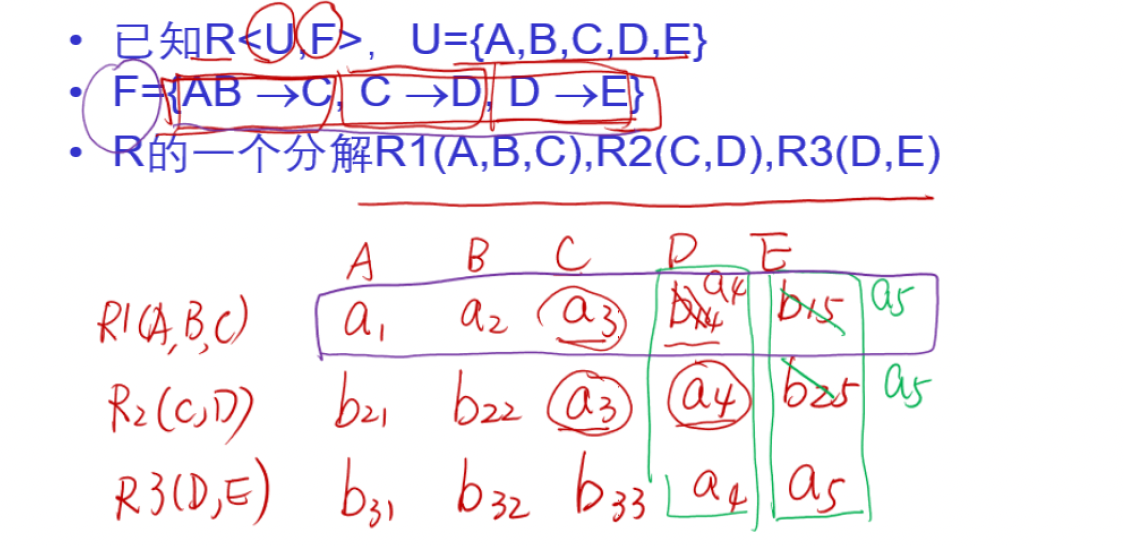 • 已知R<U,F>, U={A,B,C,D,E}
• F={AB →C, C →D, D →E}
• R的一个分解R1(A,B,C),R2(C,D),R3(D,E)
A B C D E
R1(A,B,C) a1 a2 a3 b14 a4 b15 a5
R2(C,D) b21 b22 a3 a4 b25 a5
R3(D,E) b31 b32 b33 a4 a5